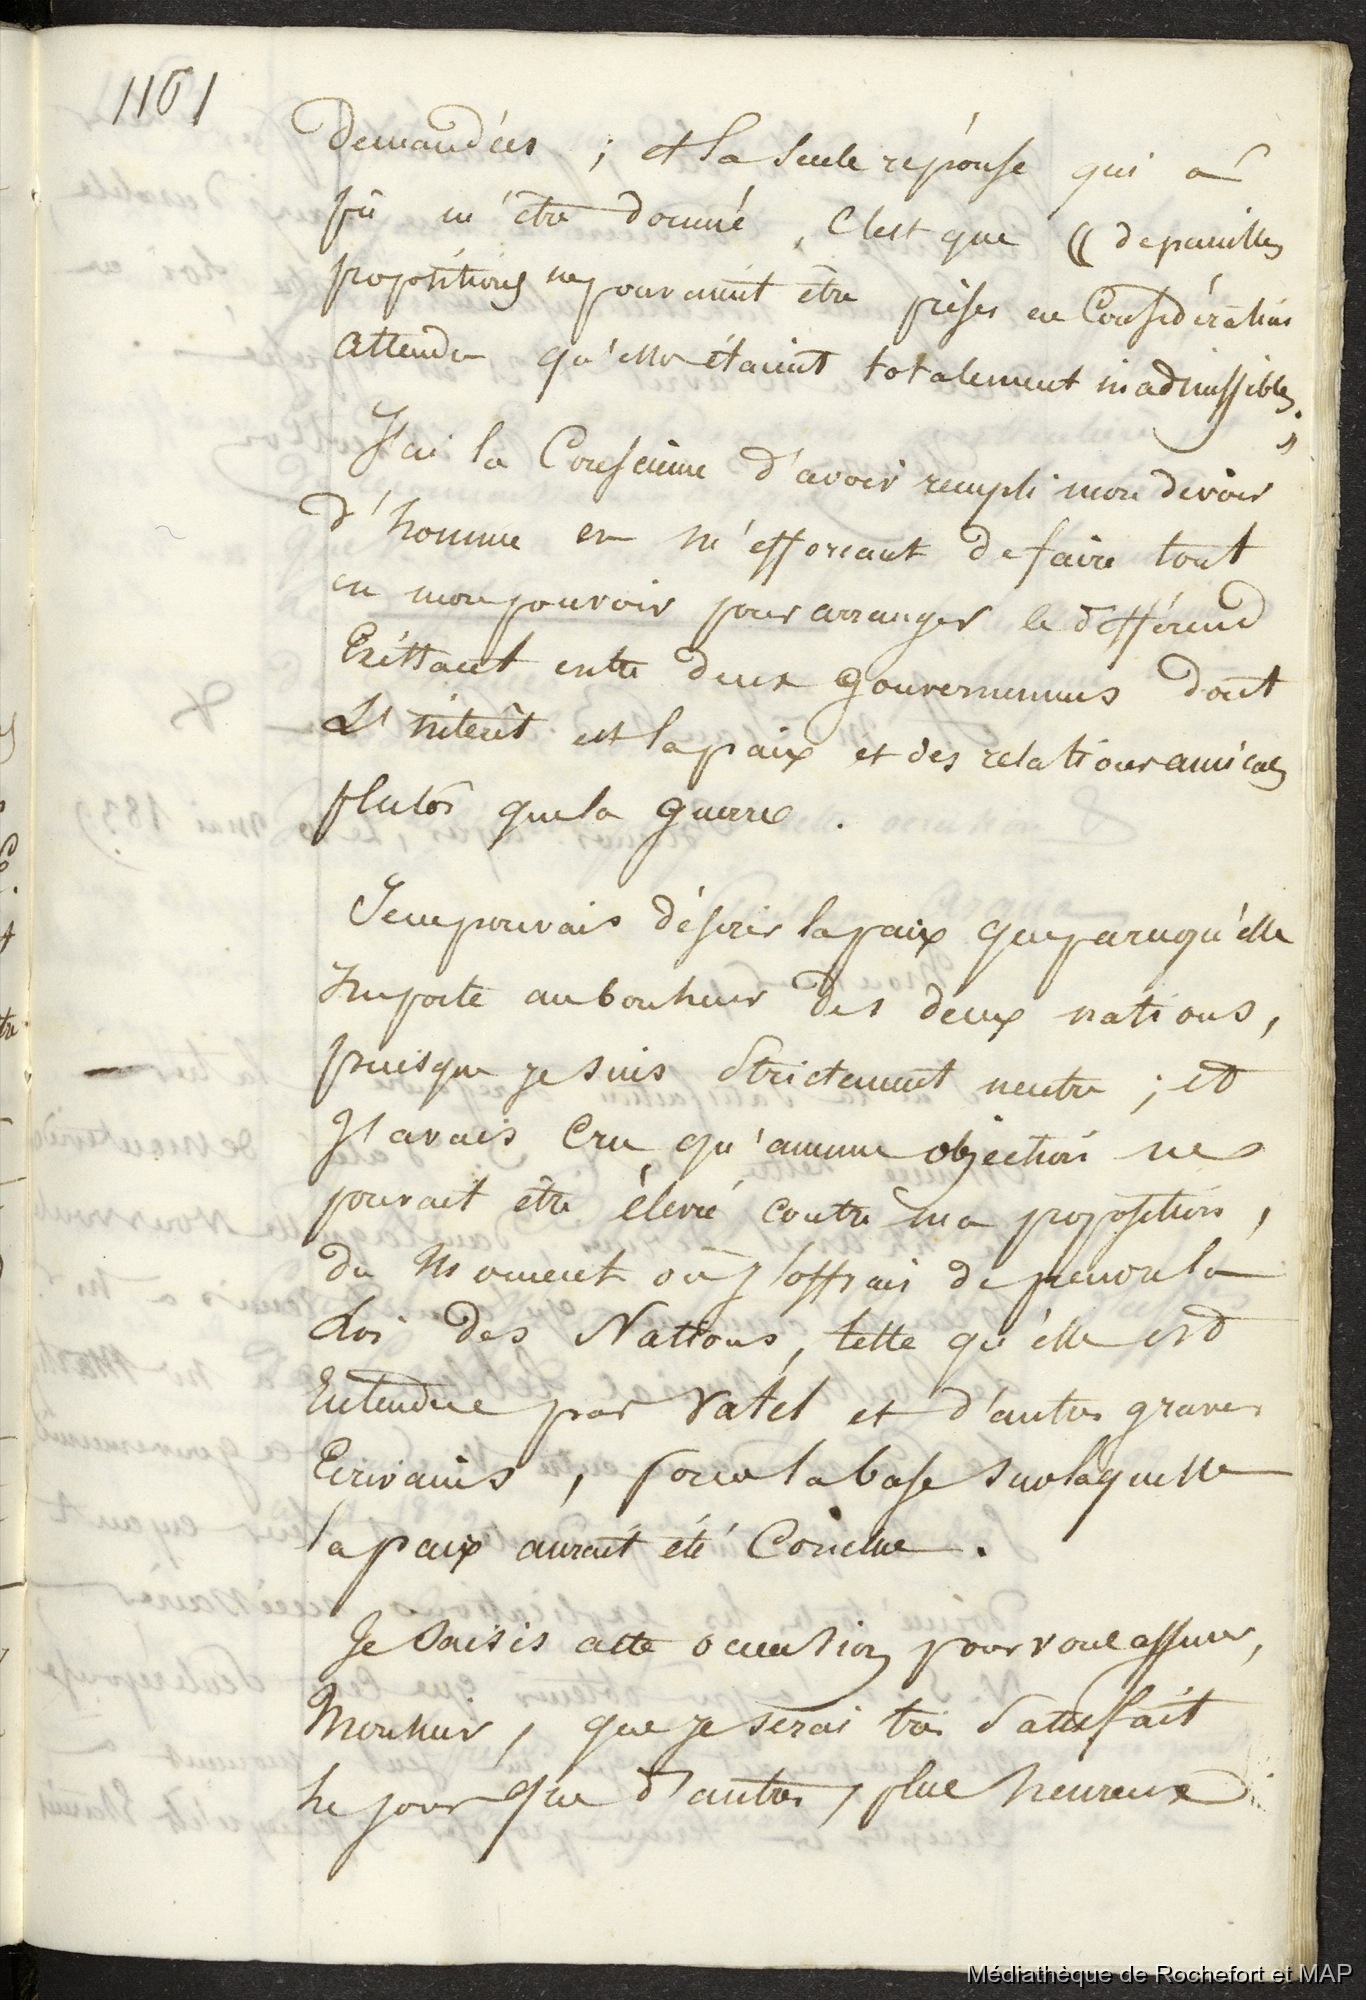 1161
demandées ; et la seule réponse qui a
pû m'être donné, C'est que (( de pareilles
propositions ne pouvaient être prises en Considération
attendu qu'elles étaient totalement inadmissibles. ))
J'ai la Conscience d'avoir rempli mon devoir
d'homme en m'efforçant de faire tout
en mon pouvoir pour arranger le différend
Existant entre deux gouvernemens dont
L'intérêt est la paix et des relations amicales
plutôt que la guerre.
Je ne pouvais désirer la paix que parcequ'elle
Importe au bonheur des deux nations,
puisque je suis Strictement neutre ; et
J'avais Cru qu'aucune objection ne
pouvait être élevée contre ma proposition,
du Moment où j'offrais de prendre la
Loi des Nations, telle qu'elle est
Entendue par Vatel et d'autres graves
Ecrivains, pour la base sur laquelle
la paix aurait été Conclue.
Je Saisis cette occasion pour vous assurer,
Monsieur, que je serai très Satisfait
le jour que d'autres, plus heureux
Médiathèque de Rochefort et MAP